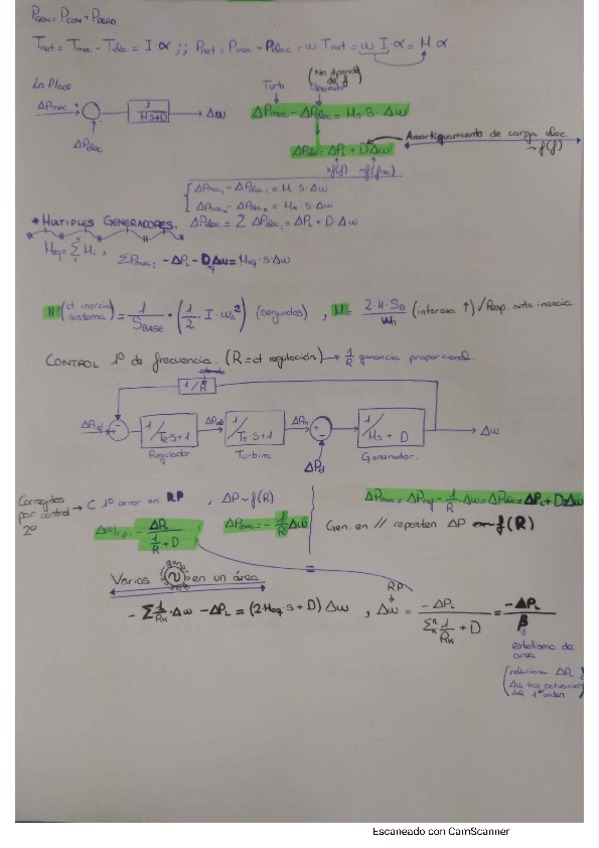 P_GEN = P_CON + P_PERD
T_net = T_mec - T_elec = I α ;; P_net = P_mec - P_elec = w T_net = w I α = M α
La Place
Turb
(No depende de f)
ΔP_mec
1/(Ms+D)
Δw
ΔP_elec
ΔP_mec - ΔP_elec = M·s·Δw
Amortiguamiento de carga elec. ~f(f)
ΔP_elec = ΔP_L + DΔw
≠f(f) ~f(f)
ΔP_mec1 - ΔP_elec1 = M·s·Δw
ΔP_mecn - ΔP_elecn = M·s·Δw
* MULTIPLES GENERADORES.
ΔP_elec = Σ ΔP_elec_i = ΔP_L + D Δw
M_eq = Σ M_i , ΣP_mec_i - ΔP_L - DΔw = M_eq·s·Δw
H (ct. inercia sistema) = 1/S_BASE · (1/2 · I · w_n²) (segundos) , M = 2·H·S_B/w_n (interesa ↑) √ Resp. ante inercia
CONTROL 1º de frecuencia. (R = ct regulación) → 1/R ganancia proporcional.
1/R
ΔP_ref
1/(T_R s+1)
1/(T_T s+1)
ΔP_m
1/(Ms + D)
Δw
Regulador
Turbina
Generador.
ΔP_L
Corregidos por control 2º → C 1º error en RP , ΔP~f(R)
ΔP_mec = ΔP_ref - 1/R Δw = ΔP_elec = ΔP_L + DΔw
Δw_r.p. = - ΔP_L/(1/R + D)
ΔP_mec = - 1/R Δw
Gen. en // reparten ΔP ~f(R)
Varios gener. en un área.
RP
- Σ 1/R_k · Δw - ΔP_L = (2·H_eq·s + D) Δw , Δw = -ΔP_L/(Σ 1/R_k + D) = -ΔP_L/β
estatismo de area
(relaciona ΔP_L y Δw tras actuación del 1º orden
Escaneado con CamScanner